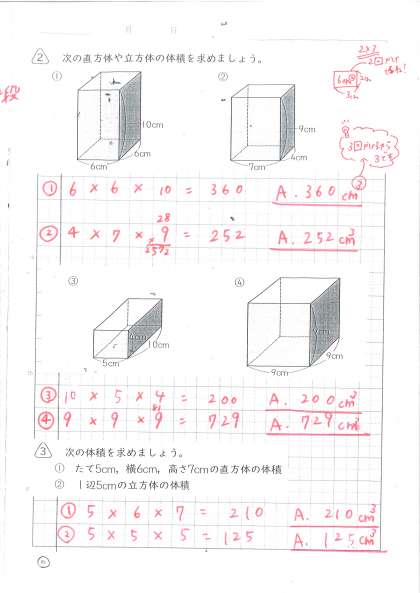 月　日
2 次の直方体や立方体の体積を求めましょう。
①
②
10cm
6cm
6cm
9cm
4cm
7cm
① 6 × 6 × 10 = 360 A. 360 cm³
28
② 4 × 7 × 9 = 252 A. 252 cm³
×9
252
③
④
4cm
10cm
5cm
9cm
9cm
9cm
③ 10 × 5 × 4 = 200 A. 200 cm³
81
④ 9 × 9 × 9 = 729 A. 729 cm³
3 次の体積を求めましょう。
① たて5cm，横6cm，高さ7cmの直方体の体積
② 1辺5cmの立方体の体積
① 5 × 6 × 7 = 210 A. 210 cm³
② 5 × 5 × 5 = 125 A. 125 cm³